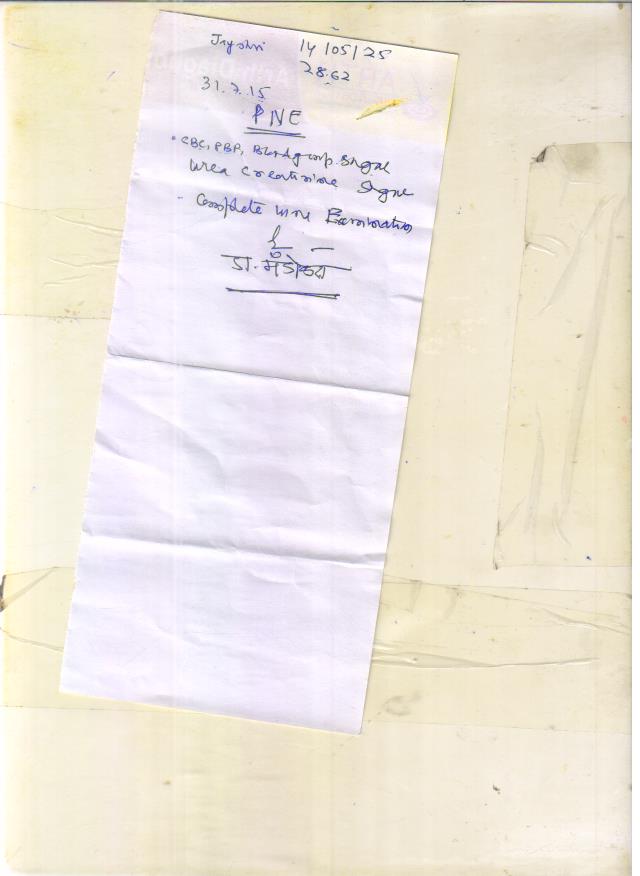 Jayshri 14/05/25
2862
31.7.15
PNE
CBC, PBP, Bloodgroup. Sugar
Urea Creatinine
- Complete Urine Examination
डा.